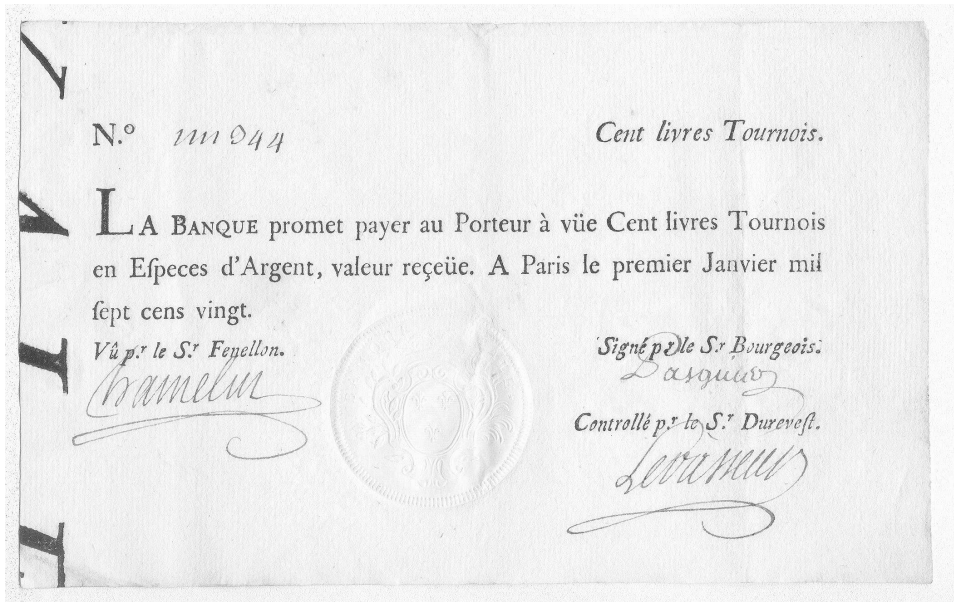 N.º 1111944 Cent livres Tournois.
LA BANQUE promet payer au Porteur à vüe Cent livres Tournois
en Eſpeces d'Argent, valeur reçeüe. A Paris le premier Janvier mil
ſept cens vingt.
Vû p.r le S.r Fenellon. Signé p.r le S.r Bourgeois.
Controllé p.r le S.r Dureveſt.
Levasseur